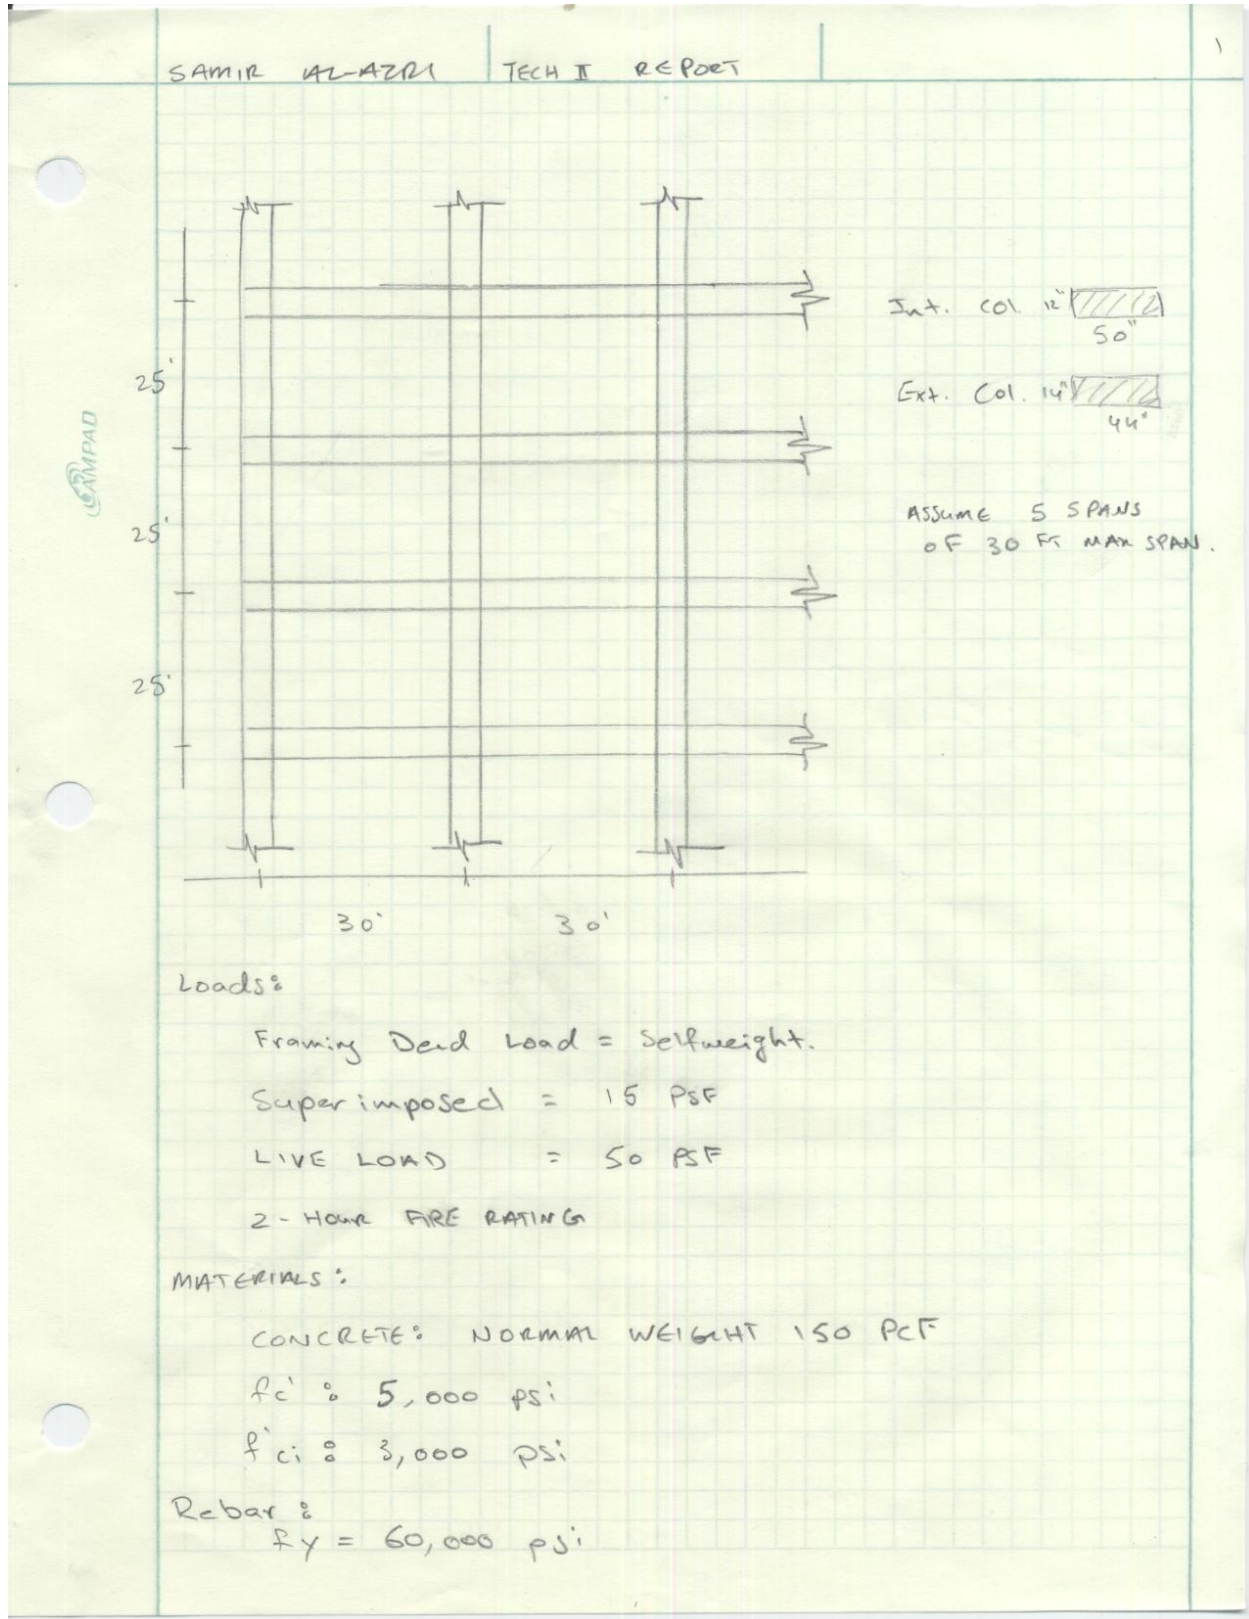 SAMIR AL-AZRI TECH II REPORT 1
Int. Col. 12"
50"
25'
Ext. Col. 14"
44"
AMPAD
ASSUME 5 SPANS
25'
OF 30 FT MAX SPAN.
25'
30' 30'
Loads:
Framing Dead Load = Selfweight.
Superimposed = 15 PSF
LIVE LOAD = 50 PSF
2-HOUR FIRE RATING
MATERIALS:
CONCRETE: NORMAL WEIGHT 150 PCF
fc' : 5,000 psi
f'ci : 3,000 psi
Rebar :
fy = 60,000 psi